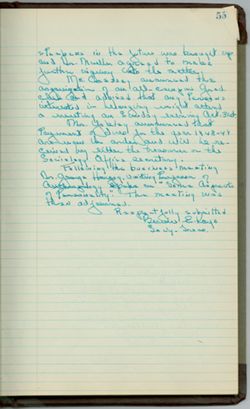 55
speakers in the future was brought up
and Mr. Mueller agreed to make
further inquiry into the matter.
Mr. Cassidy announced the
organization of an all-campus
club and advised that any persons
interested in belonging might attend
a meeting on Sunday evening Oct. 31st.
announced that
Payment of dues for the year 1948-49
are now in order and will be re-
ceived by either the treasurer or the
Sociology Office secretary.
Following the business meeting
Dr. George Visiting Professor of
Anthropology spoke on "Some Aspects
of Personality". The meeting was
then adjourned.
Respectfully submitted
Kaye
Sec'y-Treas.